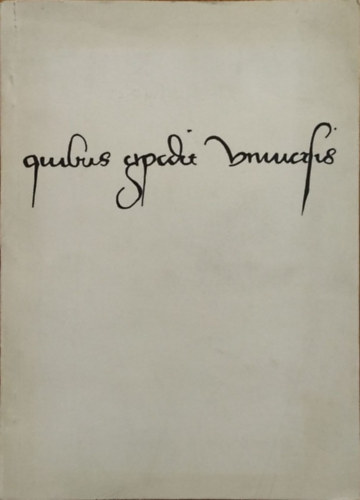 quibus expedit vniuersis